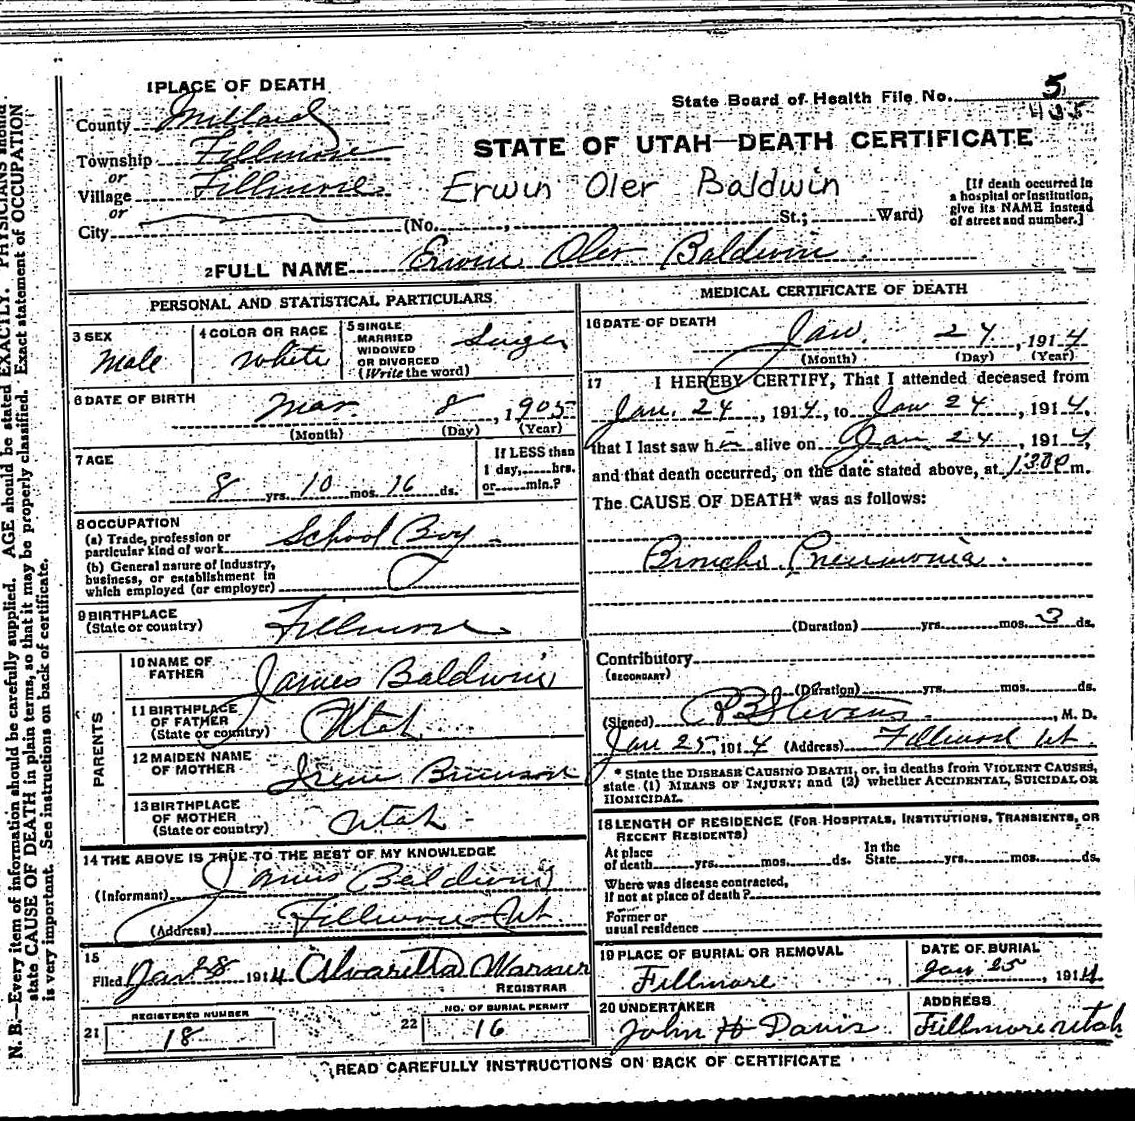 1 PLACE OF DEATH
County Millard
Township Fillmore
or
Village Fillmore
or
City
State Board of Health File No. 5
435
STATE OF UTAH—DEATH CERTIFICATE
Erwin Oler Baldwin
(No. , St.; Ward)
[If death occurred in
a hospital or institution,
give its NAME instead
of street and number.]
2 FULL NAME Erwin Oler Baldwin
PERSONAL AND STATISTICAL PARTICULARS
3 SEX
Male
4 COLOR OR RACE
White
5 SINGLE
MARRIED
WIDOWED
OR DIVORCED
(Write the word)
6 DATE OF BIRTH
Mar. 8, 1905
(Month) (Day) (Year)
7 AGE
8 yrs. 10 mos. 16 ds.
If LESS than
1 day, hrs.
or min.?
8 OCCUPATION
(a) Trade, profession or
particular kind of work School Boy
(b) General nature of industry,
business, or establishment in
which employed (or employer)
9 BIRTHPLACE
(State or country) Fillmore
PARENTS
10 NAME OF
FATHER James Baldwin
11 BIRTHPLACE
OF FATHER
(State or country) Utah
12 MAIDEN NAME
OF MOTHER Irene Brunson
13 BIRTHPLACE
OF MOTHER
(State or country) Utah
14 THE ABOVE IS TRUE TO THE BEST OF MY KNOWLEDGE
(Informant) James Baldwin
(Address) Fillmore Ut.
15
Filed Jan 28 1914 Alvaretta Warner
REGISTRAR
21 REGISTERED NUMBER
18
22 NO. OF BURIAL PERMIT
16
MEDICAL CERTIFICATE OF DEATH
16 DATE OF DEATH
Jan. 24, 1914
(Month) (Day) (Year)
17 I HEREBY CERTIFY, That I attended deceased from
Jan. 24, 1914, to Jan 24, 1914,
that I last saw h alive on Jan 24, 1914,
and that death occurred, on the date stated above, at m.
The CAUSE OF DEATH* was as follows:
Broncho Pneumonia.
(Duration) yrs. mos. 3 ds.
Contributory
(SECONDARY)
(Duration) yrs. mos. ds.
(Signed) Stevens, M. D.
Jan 25, 1914 (Address) Fillmore Ut.
* State the DISEASE CAUSING DEATH, or, in deaths from VIOLENT CAUSES,
state (1) MEANS OF INJURY; and (2) whether ACCIDENTAL, SUICIDAL OR
HOMICIDAL.
18 LENGTH OF RESIDENCE (FOR HOSPITALS, INSTITUTIONS, TRANSIENTS, OR
RECENT RESIDENTS)
At place
of death yrs. mos. ds.
In the
State yrs. mos. ds.
Where was disease contracted,
if not at place of death?
Former or
usual residence
19 PLACE OF BURIAL OR REMOVAL
Fillmore
DATE OF BURIAL
Jan 25, 1914
20 UNDERTAKER
John H Davis
ADDRESS
Fillmore Utah
READ CAREFULLY INSTRUCTIONS ON BACK OF CERTIFICATE
N. B.—Every item of information should be carefully supplied. AGE should be stated EXACTLY. PHYSICIANS should
state CAUSE OF DEATH in plain terms, so that it may be properly classified. Exact statement of OCCUPATION
is very important. See instructions on back of certificate.